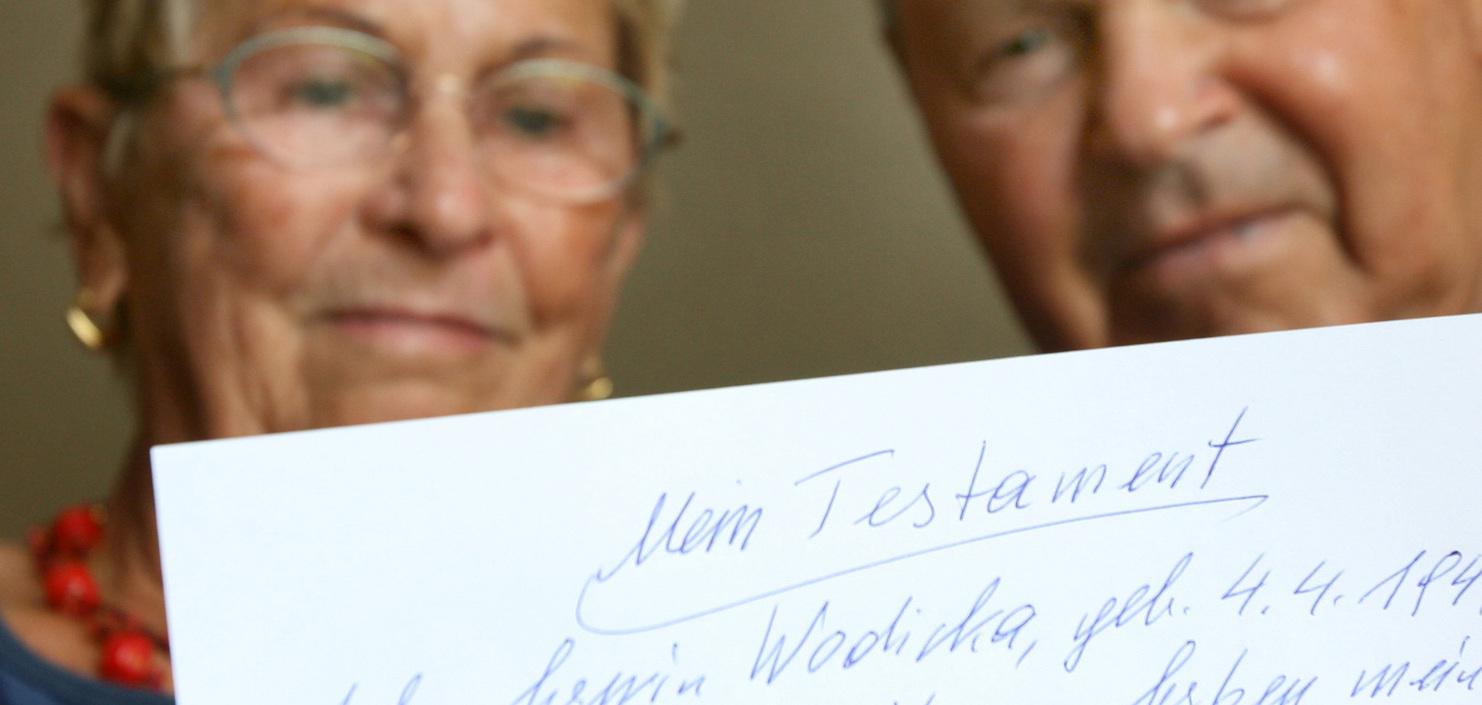 Mein Testament
Ich Erwin Wodicka, geb. 4.4.194
Erben mein